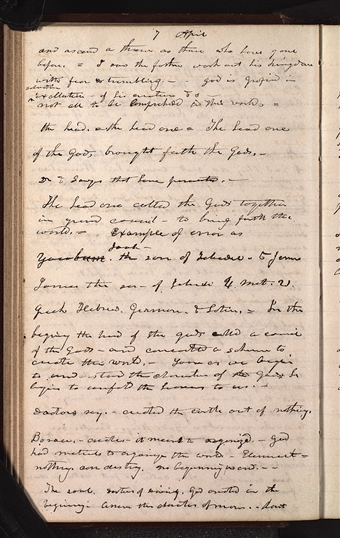 7 April
and ascend a throne as those who have gone
before. & I saw the father work out his kingdom
with fear & trembling. — god is glorified in
salvation
exaltation — of his creatures &c —
not all to be comprehended in this world,
the head. the head one — The head one
of the Gods, brought forth the Gods. —
Dr & Lawyers that have persecuted. —
The head one called the Gods together
in grand council — to bring forth the
world. — Example of error as
Jacob —
the son of Zebedee — to
James the son of Zebede 4 Mat. 21
Greek Hebrew, German, & Latin, = In the
begining the head of the gods called a council
of the Gods — and concocted a scheme to
create the world. — Soon as we begin
to understand the character of the Gods he
begins to unfold the heavens to us. —
Doctors say. — created the earth out of nothing.
create — it meant to organized. — God
had materials to organize the world — Element —
nothing can destroy. no beginning no end. —
The soul. doctors of divinity. God created in the
beginning. the character of man. — dont